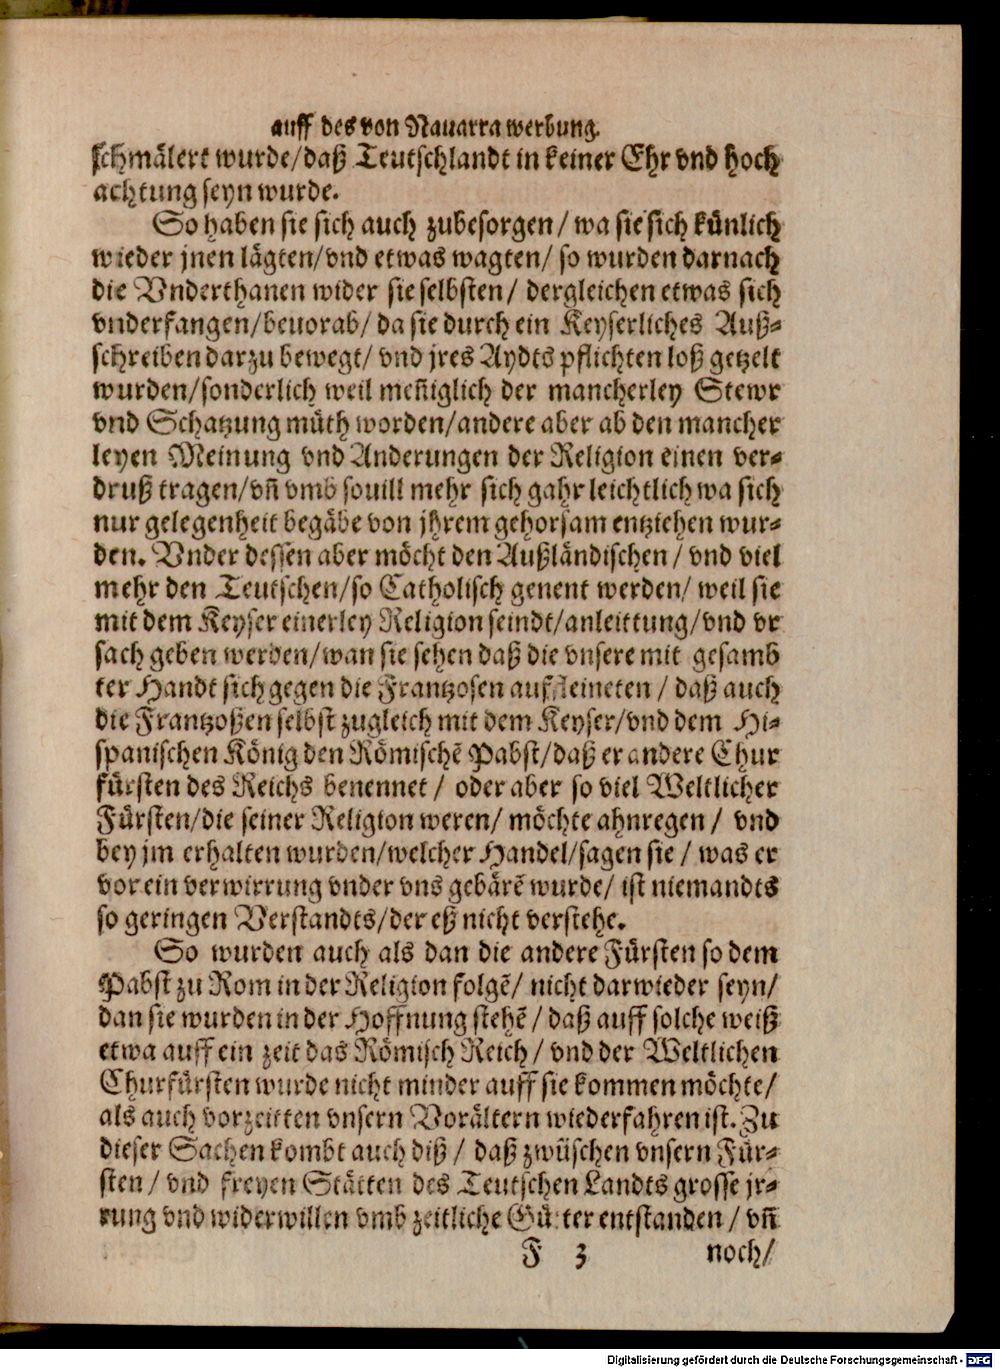 auff des von Nauarra werbung.
schmälert wurde/daß Teutschlandt in keiner Ehr vnd hoch
achtung seyn wurde.
So haben sie sich auch zubesorgen/ wa sie sich künlich
wieder jnen lägten/vnd etwas wagten/ so wurden darnach
die Vnderthanen wider sie selbsten/ dergleichen etwas sich
vnderfangen/beuorab/ da sie durch ein Keyserliches Auß-
schreiben darzu bewegt/ vnd jres Aydts pflichten loß getzelt
wurden/sonderlich weil meñiglich der mancherley Stewr
vnd Schatzung müth worden/andere aber ab den mancher
leyen Meinung vnd Anderungen der Religion einen ver-
druß tragen/vñ vmb souill mehr sich gahr leichtlich wa sich
nur gelegenheit begäbe von jhrem gehorsam entziehen wur-
den. Vnder dessen aber möcht den Außländischen/ vnd viel
mehr den Teutschen/so Catholisch genent werden/ weil sie
mit dem Keyser einerley Religion seindt/anleittung/vnd vr
sach geben werden/wan sie sehen daß die vnsere mit gesamb
ter Handt sich gegen die Frantzosen auffleineten/ daß auch
die Frantzoßen selbst zugleich mit dem Keyser/vnd dem Hi-
spanischen König den Römischē Pabst/daß er andere Chur
fürsten des Reichs benennet/ oder aber so viel Weltlicher
Fürsten/die seiner Religion weren/ möchte ahnregen/ vnd
bey jm erhalten wurden/welcher Handel/sagen sie/ was er
vor ein verwirrung vnder vns gebärē wurde/ ist niemandts
so geringen Verstandts/der eß nicht verstehe.
So wurden auch als dan die andere Fürsten so dem
Pabst zu Rom in der Religion folgē/ nicht darwieder seyn/
dan sie wurden in der Hoffnung stehē/ daß auff solche weiß
etwa auff ein zeit das Römisch Reich/ vnd der Weltlichen
Churfürsten wurde nicht minder auff sie kommen möchte/
als auch vorzeitten vnsern Vorältern wiederfahren ist. Zu
dieser Sachen kombt auch diß/ daß zwüschen vnsern Für-
sten/ vnd freyen Stätten des Teutschen Landts grosse jr-
rung vnd widerwillen vmb zeitliche Gütter entstanden/ vñ
F 3 noch/
Digitalisierung gefördert durch die Deutsche Forschungsgemeinschaft - DFG